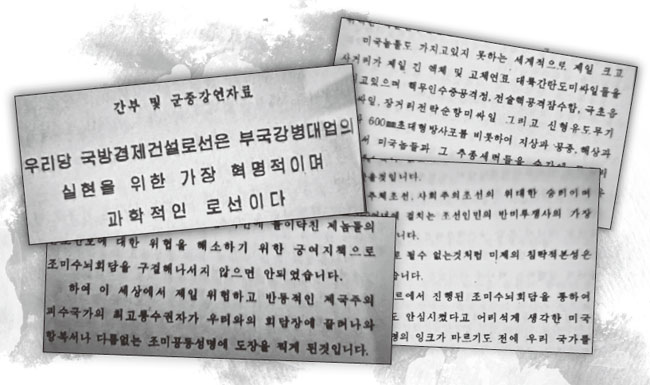 간부 및 군중강연자료
우리당 국방경제건설로선은 부국강병대업의
실현을 위한 가장 혁명적이며
과학적인 로선이다
미국놈들도 가지고있지 못하는 세계적으로 제일 크고
사거리가 제일 긴 액체 및 고체연료 대륙간탄도미싸일들을
고있으며 핵무인수중공격정, 전술핵공격잠수함, 극초음
싸일, 장거리전략순항미싸일 그리고 신형유도무기
600㎜초대형방사포를 비롯하여 지상과 공중, 해상과
서 미국놈들과 그 추종세력들을
들이닥친 제놈들의
에 대한 위협을 해소하기 위한 궁여지책으로
조미수뇌회담을 구걸해나서지 않으면 안되였습니다.
하여 이 세상에서 제일 위험하고 반동적인 제국주의
괴수국가의 최고통수권자가 우리와의 회담장에 끌려나와
항복서나 다름없는 조미공동성명에 도장을 찍게 된것입니다.
을것입니다.
주체조선, 사회주의조선의 위대한 승리이며
에 걸치는 조선인민의 반미투쟁사의 가장
니다.
로 될수 없는것처럼 미제의 침략적본성은
습니다.
르에서 진행된 조미수뇌회담을 통하여
도 안심시켰다고 어리석게 생각한 미국
명의 잉크가 마르기도 전에 우리 국가를